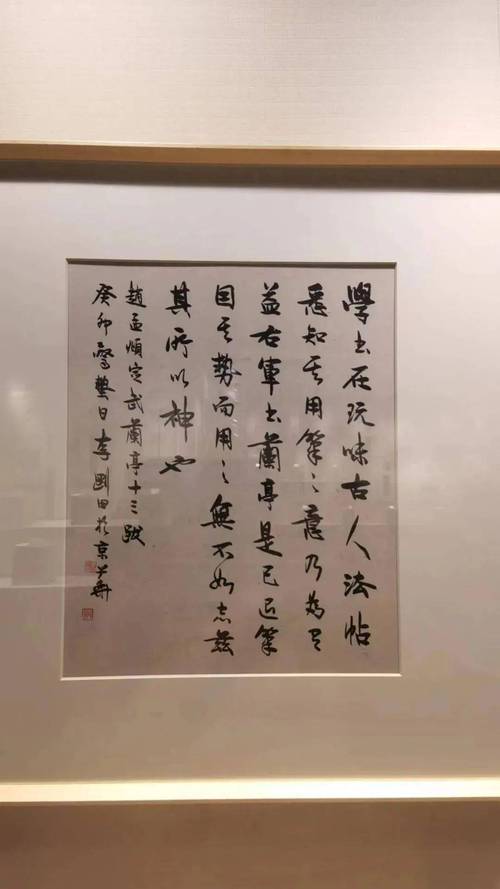 學書在玩味古人法帖
悉知其用筆之意乃為有
益右軍書蘭亭是已退筆
因其勢而用之無不如志茲
其所以神也
趙孟頫定武蘭亭十三跋
癸卯驚蟄日李剛田於京華